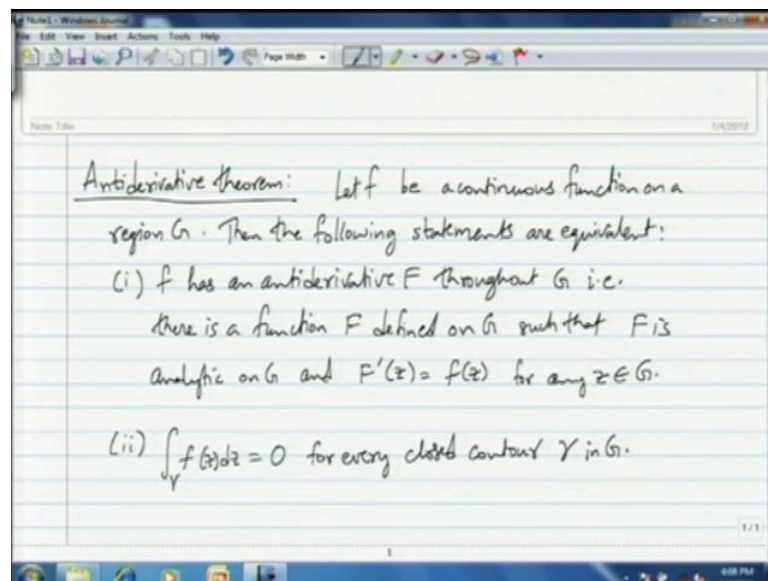 Note1 - Windows Journal
File Edit View Insert Actions Tools Help
Page Width
Note Title
1/4/2012
Antiderivative theorem: Let f be a continuous function on a
region G. Then the following statements are equivalent:
(i) f has an antiderivative F throughout G i.e.
there is a function F defined on G such that F is
analytic on G and F'(z) = f(z) for any z ∈ G.
(ii) ∫γ f(z)dz = 0 for every closed contour γ in G.
1/1
1
6:08 PM